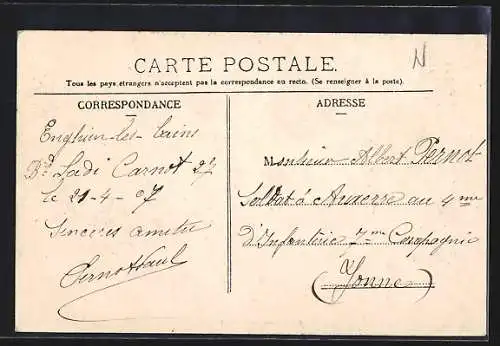 N
CARTE POSTALE.
Tous les pays étrangers n'acceptent pas la correspondance au recto. (Se renseigner à la poste).
CORRESPONDANCE
Enghien-les-bains
Bd Sadi Carnot 27
le 21-4-07
Sinceres amitie
Pernot Paul
ADRESSE
Monsieur Albert Pernot
Soldat à Auxerre au 4me
D'Infanterie 7me Compagnie
(Yonne)